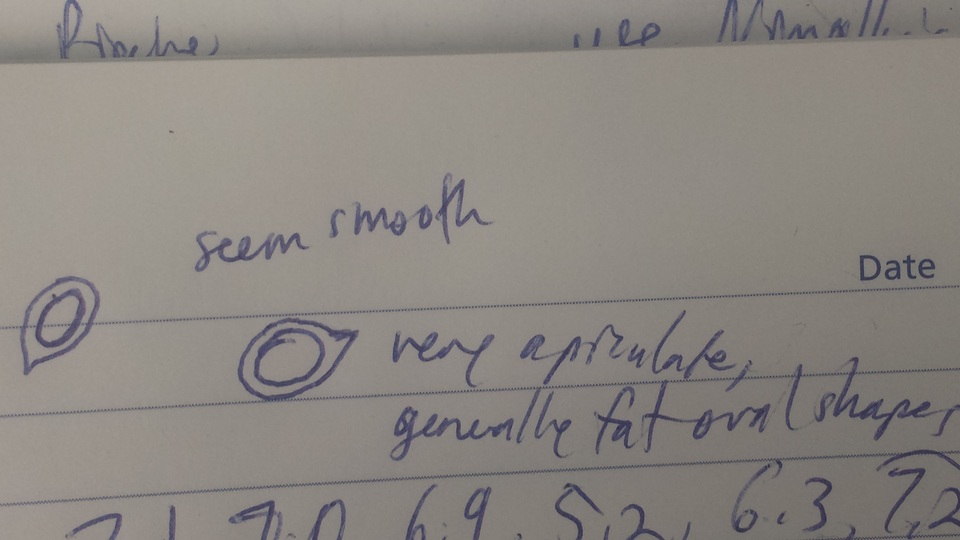 seem smooth
Date
very apiculate,
generally fat oval shapes
7.0, 6.9, 5.2, 6.3, 7.2